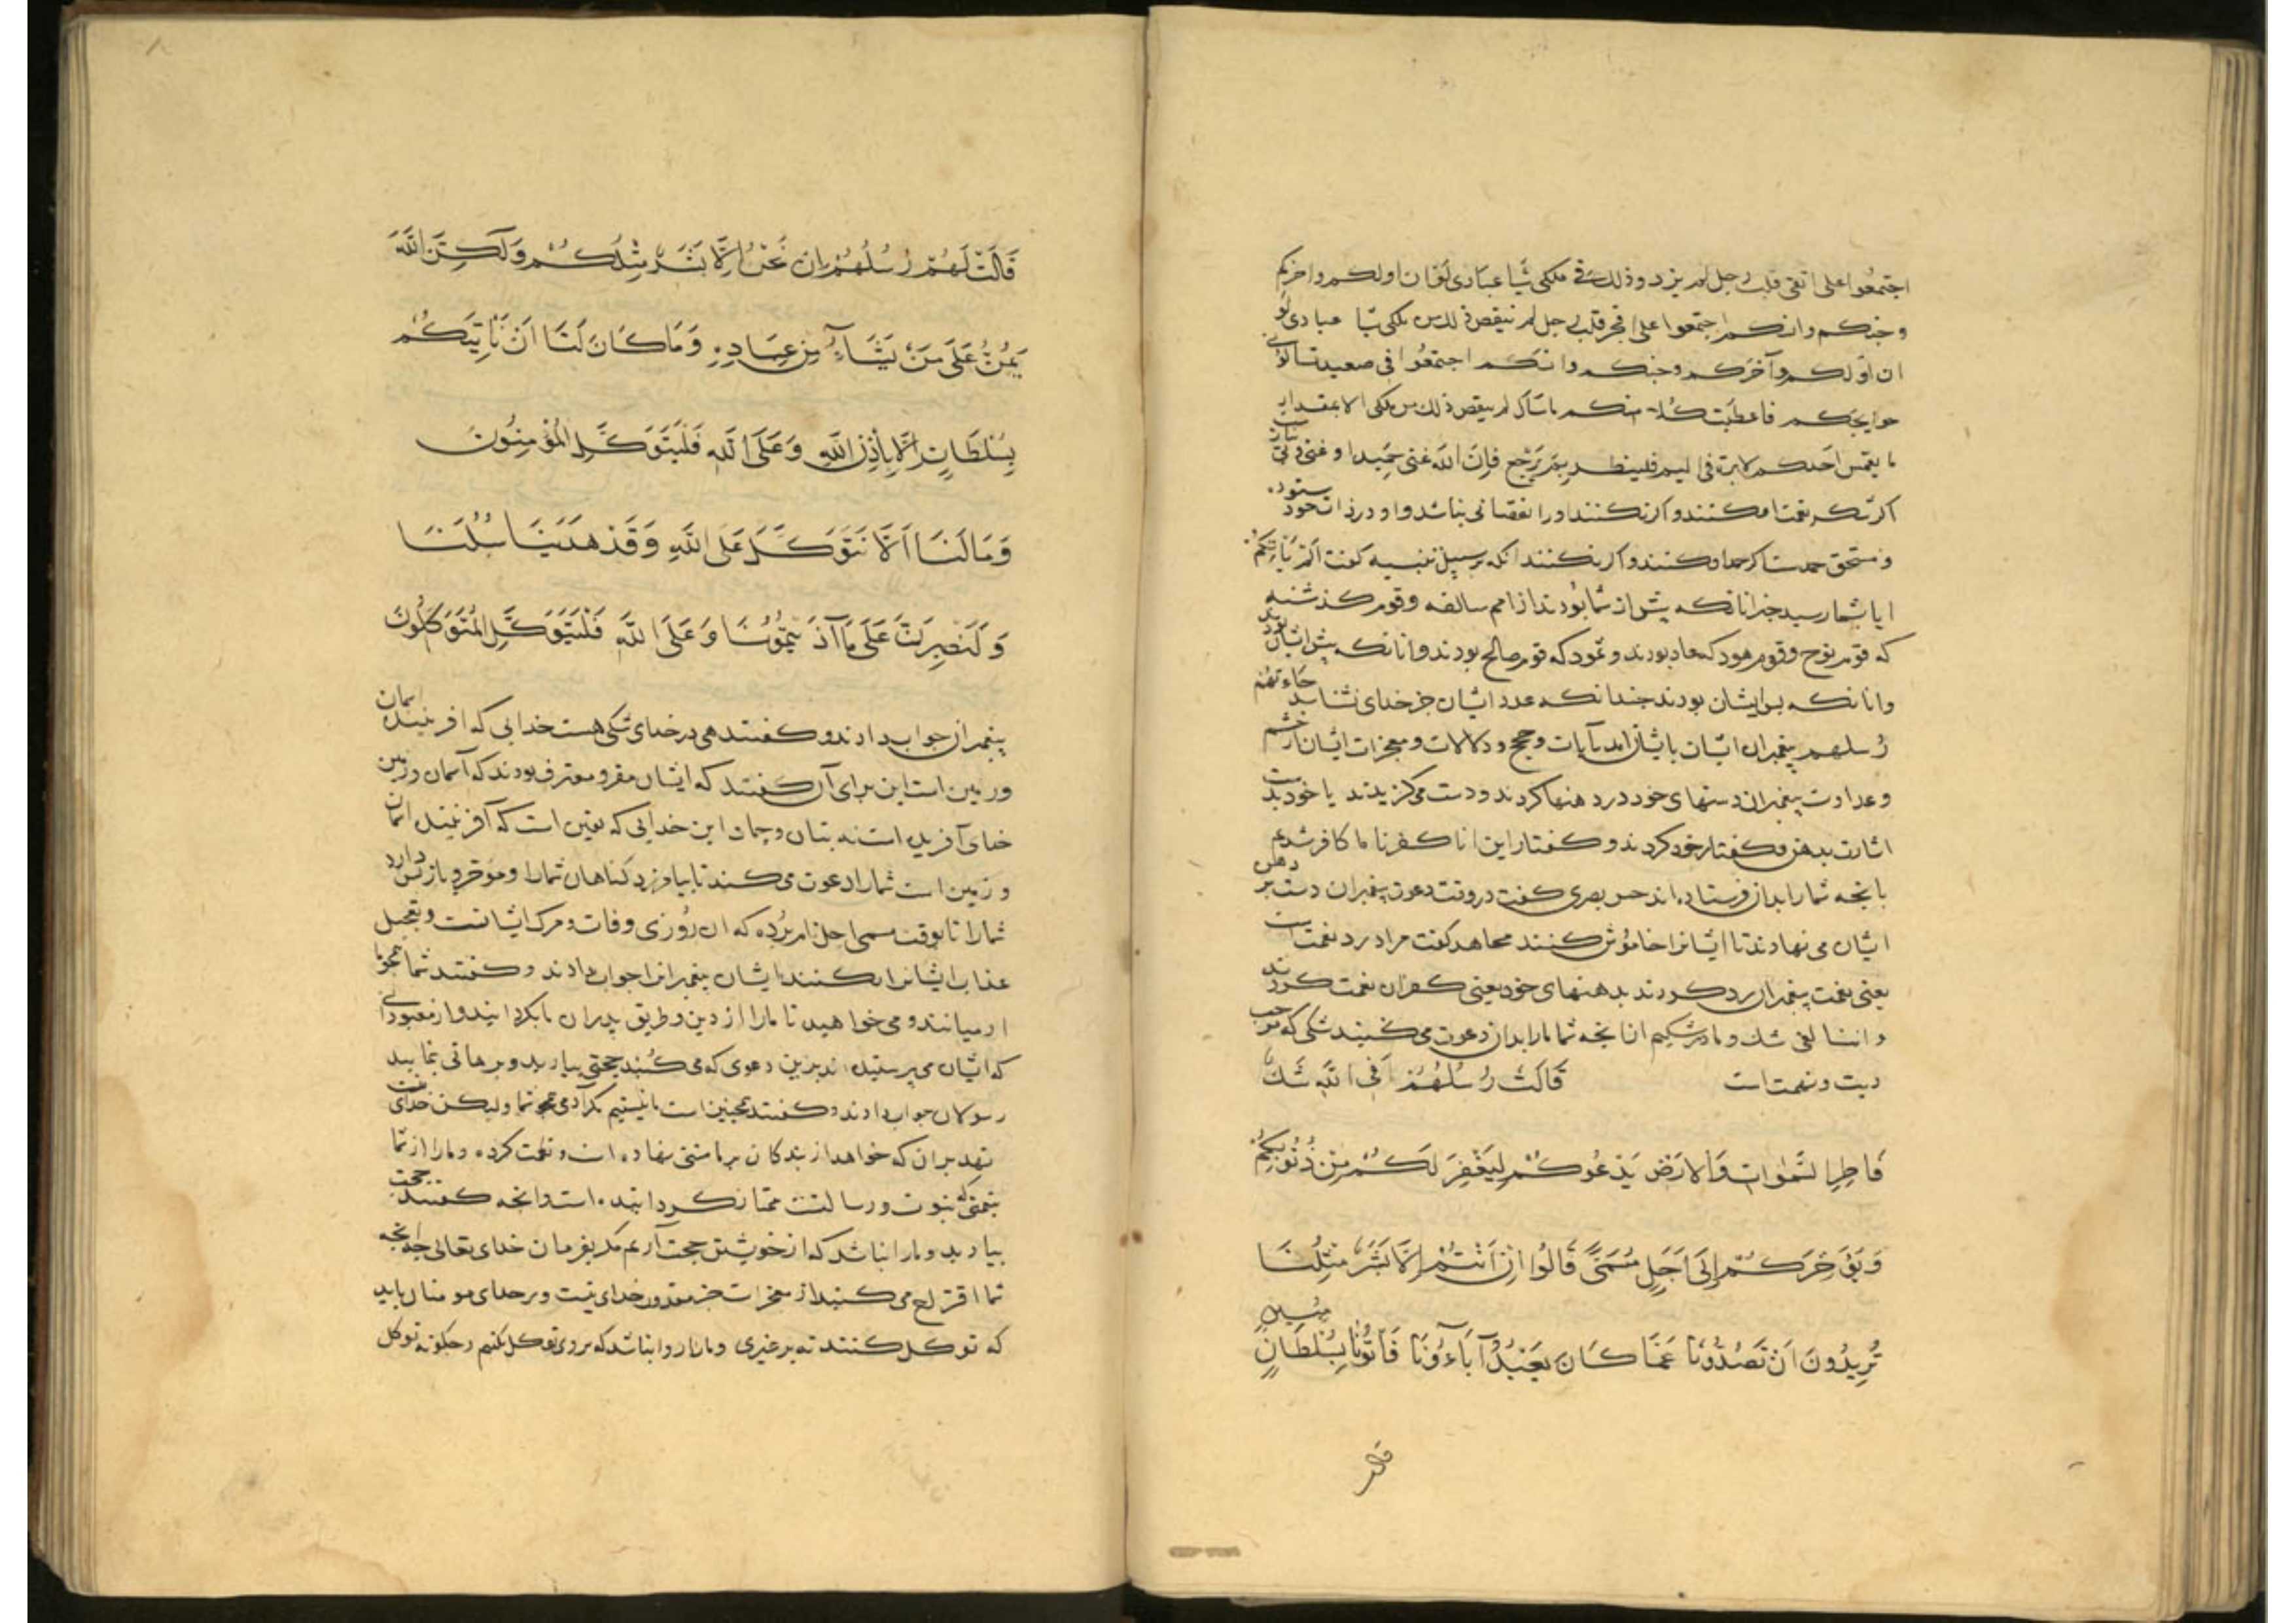 اجتمعوا على اتقى قلب رجل لم يزد وذلك فى ملكى شيا عبادى لو ان اولكم واخركم
وجنكم وانسكم اجتمعوا على افجر قلب رجل لم ينقص ذلك من ملكى شيا عبادى لو
ان اولكم وآخركم وجنكم وانسكم اجتمعوا فى صعيد
حوايجكم فاعطيت كل منكم ما سأل لم ينقص ذلك من ملكى الا بمقدار
ما يغمس احدكم الابرة فى اليم فلينظر بم يرجع فان الله غنى حميد او غنى
اكر شكر نعمت او كنند و اكر نكنند او را نقصانى نباشد و او در ذات خود ستوده
و مستحق حمد است اكر حمد او كنند و اكر نكنند انكه بر سبيل تنبيه كفت الم يأتكم
ايا بشما رسيد خبر انانكه پيش از شما بودند از امم سالفه و قوم كذشته
كه قوم نوح و قوم هود كه عاد بودند و ثمود كه قوم صالح بودند و انانكه پيش ايشان بودند
و انانكه پس ايشان بودند چندانكه عدد ايشان جز خداى نشناسد جاءتهم
رسلهم پيغمبران ايشان بايشان امد بآيات و حجج و دلالات و معجزات ايشان از خشم
و عداوت پيغمبران دستهاى خود در دهنها كردند و دست مىكزيدند يا خود بدست
اشارت بدهن و كفتار خود كردند و كفتار اين انا كفرنا ما كافر شديم
بانچه شما را بدان فرستاده اند حسن بصرى كفت در وقت دعوت پيغمبران دست بر دهن
ايشان مى نهادند تا ايشانرا خاموش كنند مجاهد كفت مراد رد نعمت است
يعنى نعمت پيغمبران رد كردند بدهنهاى خود يعنى كفران نعمت كردند
و اننا لفى شك و ما در شكيم از انچه شما ما را بدان دعوت مى كنيد شكى كه موجب
ريبت و تهمت است قَالَتْ رُسُلُهُمْ أَفِى اللَّهِ شَكٌّ
فَاطِرِ السَّمٰوَاتِ وَالاَرْضِ يَدْعُوكُمْ لِيَغْفِرَ لَكُمْ مِنْ ذُنُوبِكُمْ
وَيُؤَخِّرَكُمْ إِلَى أَجَلٍ مُسَمًّى قَالُوا إِنْ أَنْتُمْ إِلَّا بَشَرٌ مِثْلُنَا
تُرِيدُونَ أَنْ تَصُدُّونَا عَمَّا كَانَ يَعْبُدُ آبَاؤُنَا فَأْتُونَا بِسُلْطَانٍ مُبِينٍ
قالت
قَالَتْ لَهُمْ رُسُلُهُمْ إِنْ نَحْنُ إِلَّا بَشَرٌ مِثْلُكُمْ وَلَكِنَّ اللَّهَ
يَمُنُّ عَلَى مَنْ يَشَاءُ مِنْ عِبَادِهِ وَمَا كَانَ لَنَا أَنْ نَأْتِيَكُمْ
بِسُلْطَانٍ إِلَّا بِإِذْنِ اللَّهِ وَعَلَى اللَّهِ فَلْيَتَوَكَّلِ الْمُؤْمِنُونَ
وَمَا لَنَا أَلَّا نَتَوَكَّلَ عَلَى اللَّهِ وَقَدْ هَدَيْنَا سُبُلَنَا
وَلَنَصْبِرَنَّ عَلَى مَا آذَيْتُمُونَا وَعَلَى اللَّهِ فَلْيَتَوَكَّلِ الْمُتَوَكِّلُونَ
پيغمبران جواب دادند و كفتند هى در خداى شكى هست خدايى كه افريننده اسمان
و زمين است اين براى آن كفتند كه ايشان مقر و معترف بودند كه آسمان و زمين
خداى آفريده است نه بتان و جماد اين خدايى كه يقين است كه آفريننده اسمان
و زمين است شما را دعوت مى كند تا بيامرزد كناهان شما را و مؤخر و باز پس دارد
شما را تا بوقت مسمى اجل نام برده كه ان روزى وفات و مرك ايشانست و تعجيل
عذاب ايشانرا نكنند ايشان پيغمبرانرا جواب دادند و كفتند شما همچو ما
ادميانند و مى خواهيد تا ما را از دين و طريق پدران ما بكردانيد و از معبودى
كه ايشان مى پرستيده اند برين دعوى كه مى كنيد حجتى بياريد و برهانى نماييد
رسولان جواب دادند و كفتند همچنين است ما نيستيم مكر آدمى همچو شما وليكن خداى منت
نهد بران كه خواهد از بندكان بر ما منتى نهاده است و نعمت كرده و ما را از شما
بنعمت نبوت و رسالت ممتاز كردانيده است و انچه كفتند حجت
بياريد و ما را نباشد كه از خويشتن حجت آريم مكر بفرمان خداى تعالى چه انچه
شما اقتراح مى كنيد از معجزات جز مقدور خداى نيست و بر خداى مومنان بايد
كه توكل كنند نه بر غيرى و ما را روا نباشد كه بر وى توكل نكنيم و چكونه توكل